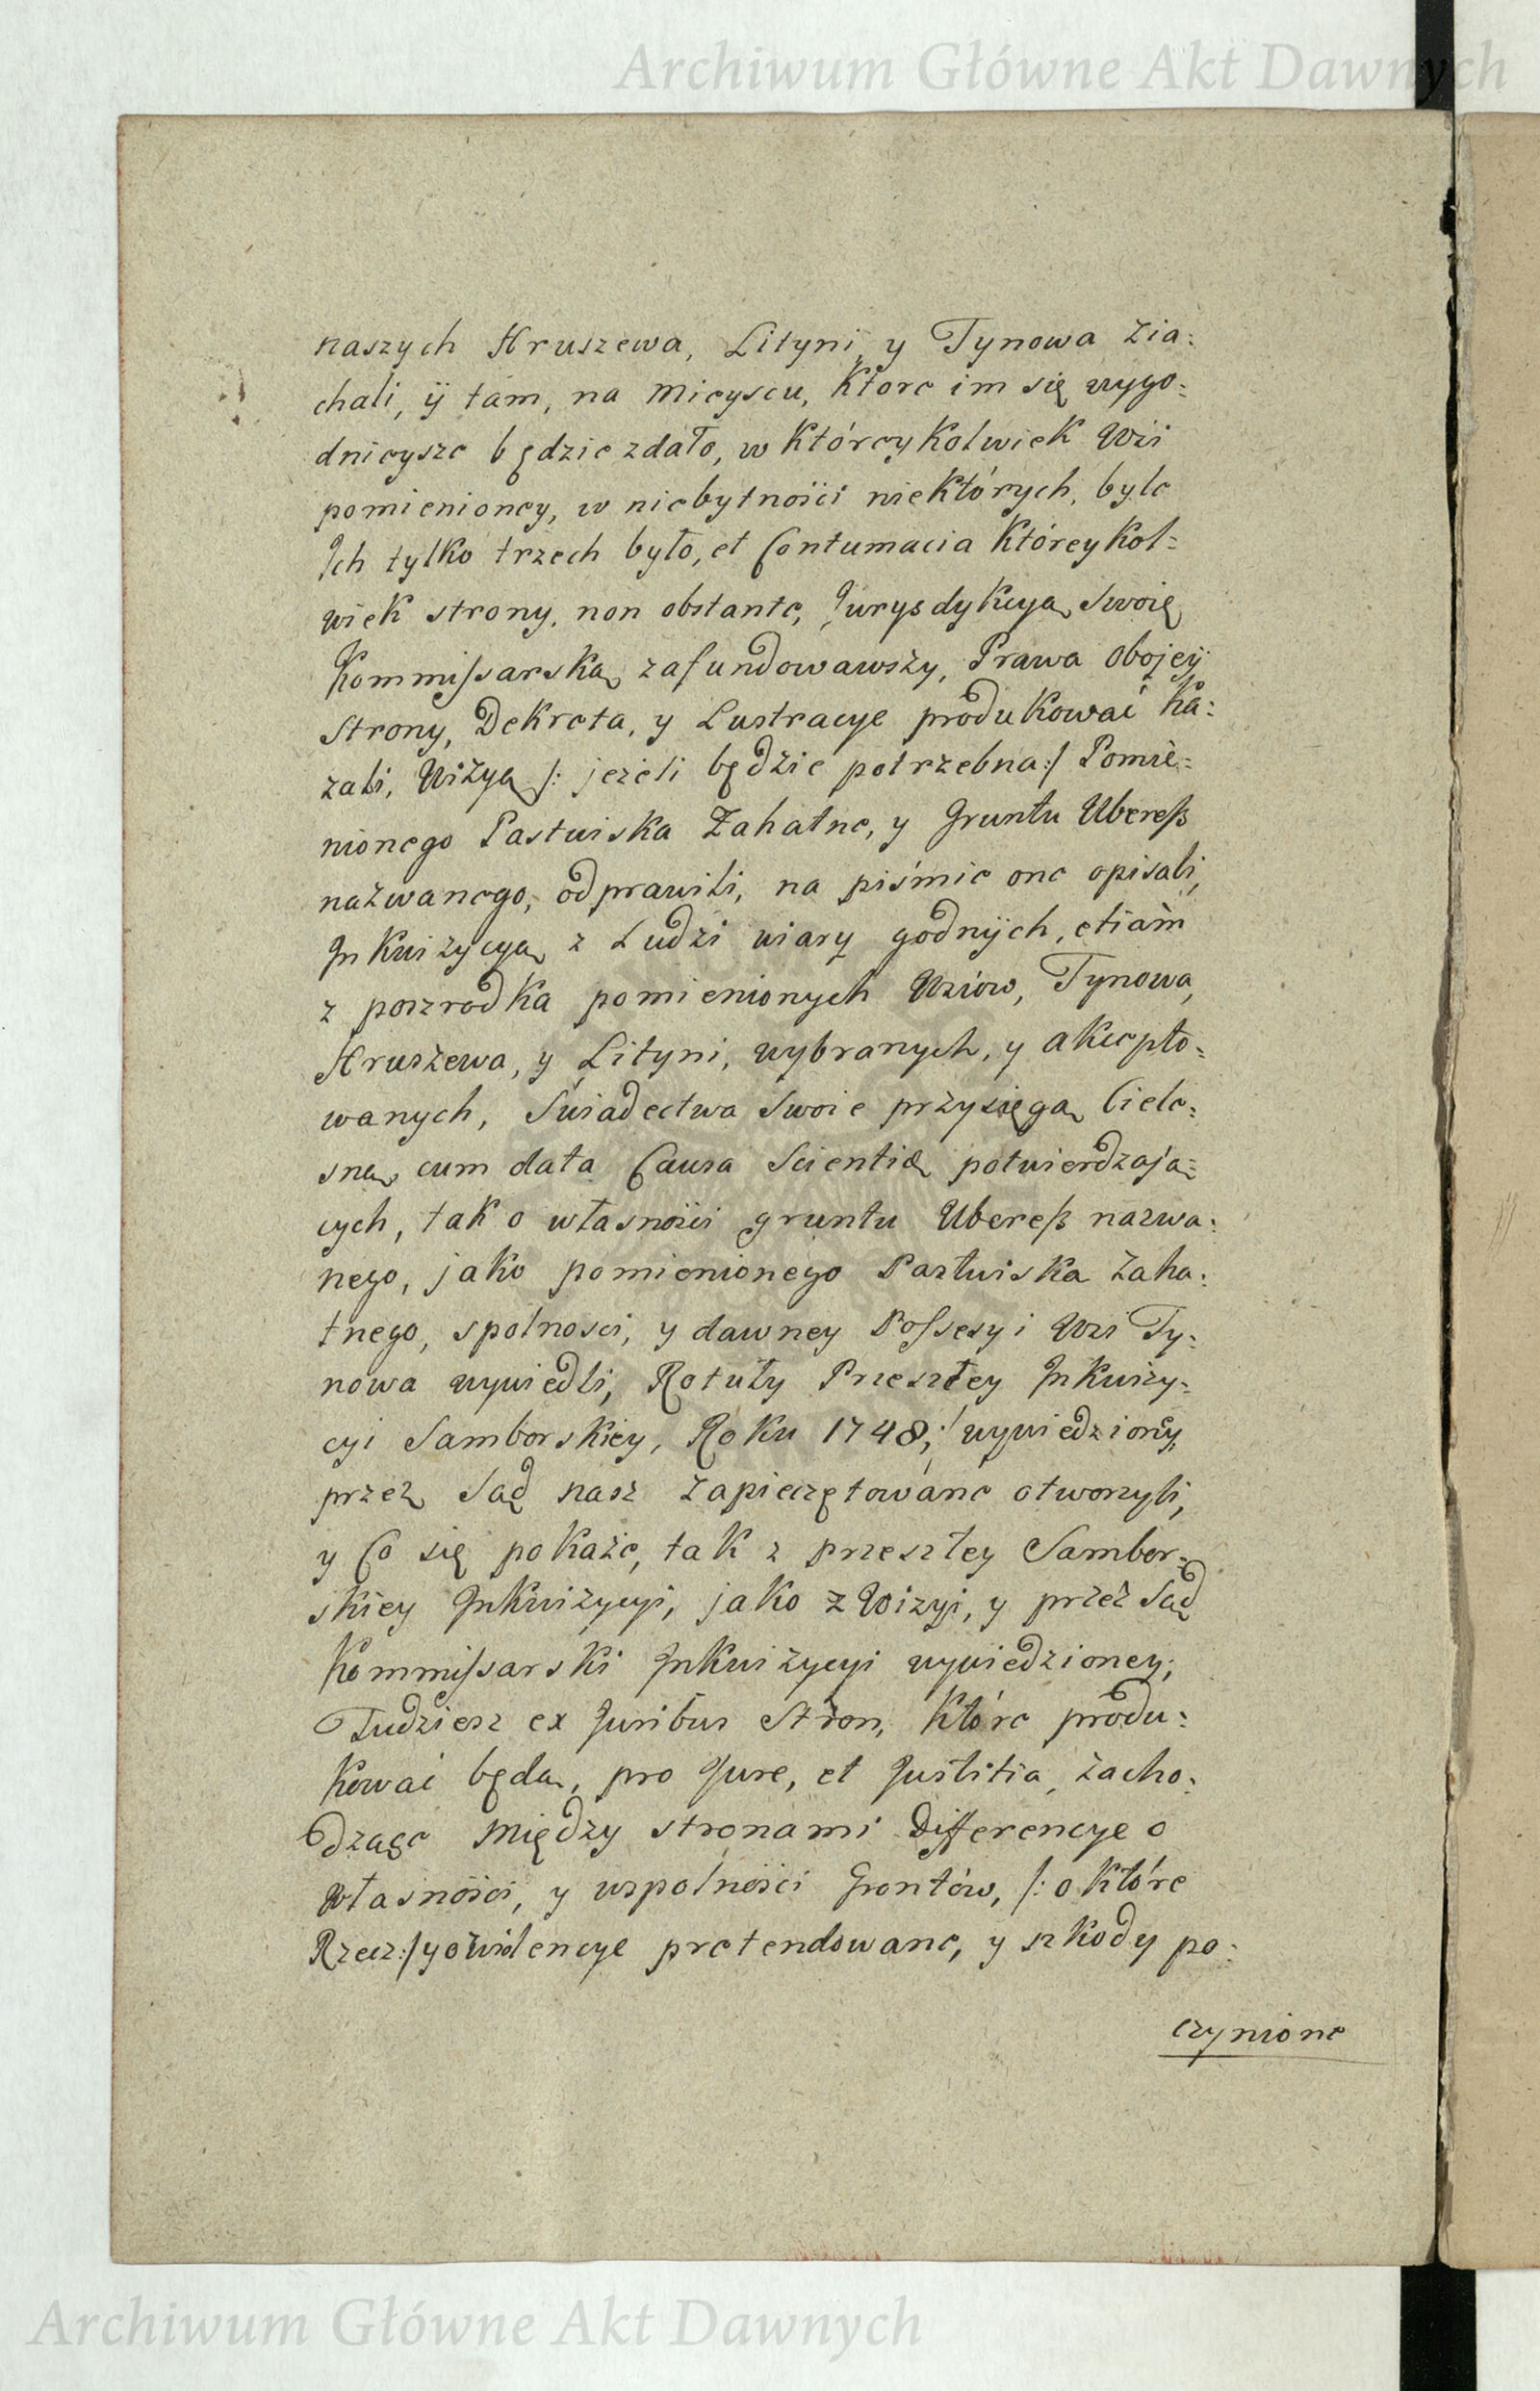 Archiwum Główne Akt Dawnych
naszych Hruszewa, Lityni, y Tynowa zia:
chali, ÿ tam, na mieyscu, ktore im się wygo:
dnieysze będzie zdało, w któreykolwiek Wsi
pomienioney, w niebytności niektórych, byle
Ich tylko trzech było, et Contumacia któreykol:
wiek strony, non obstante, Jurysdykcyą Swoię
Kommissarską zafundowawszy, Prawa obojeÿ
Strony, Dekreta, y Lustracye produkować ka:
zali, Wizyą /: jeżeli będzie potrzebna :/ Pomie:
nionego Pastwiska Zahatne, y Gruntu Ubereß
nazwanego, odprawili, na piśmie one opisali,
Inkwizycyą z Ludzi wiary godnÿch, etiam
z poszrodka pomienionych Wsiów, Tynowa,
Hruszewa, y Lityni, wybranych, y akcepto:
wanych, Świadectwa Swoie przysięgą Ciele:
sną, cum data Causa Scientiæ potwierdzają:
cych, tak o własności gruntu Ubereß nazwa:
nego, jako pomienionego Pastwiska Zaha:
tnego, spolnosci, y dawney Possesyi Wsi Ty:
nowa wywiedli, Rotuły Przeszłey Inkwizy:
cyi Samborskiey, Roku 1748, wywiedzioney,
przez Sąd nasz zapieczętowane otworzyli,
y Co się pokaże, tak z przeszłey Sambor:
skiey Inkwizycyi, jako z Wizyi, y przez Sąd
Kommissarski Inkwizycyi wywiedzioney;
Tudziesz ex Juribus Stron, które produ:
kować będą, pro Jure, et Justitia, zacho:
dzące między stronami Differencye o
własności, y wspolności Grontów, /: o które
Rzecz :/ y o pretendowane, y szkody po:
czynione
Archiwum Główne Akt Dawnych